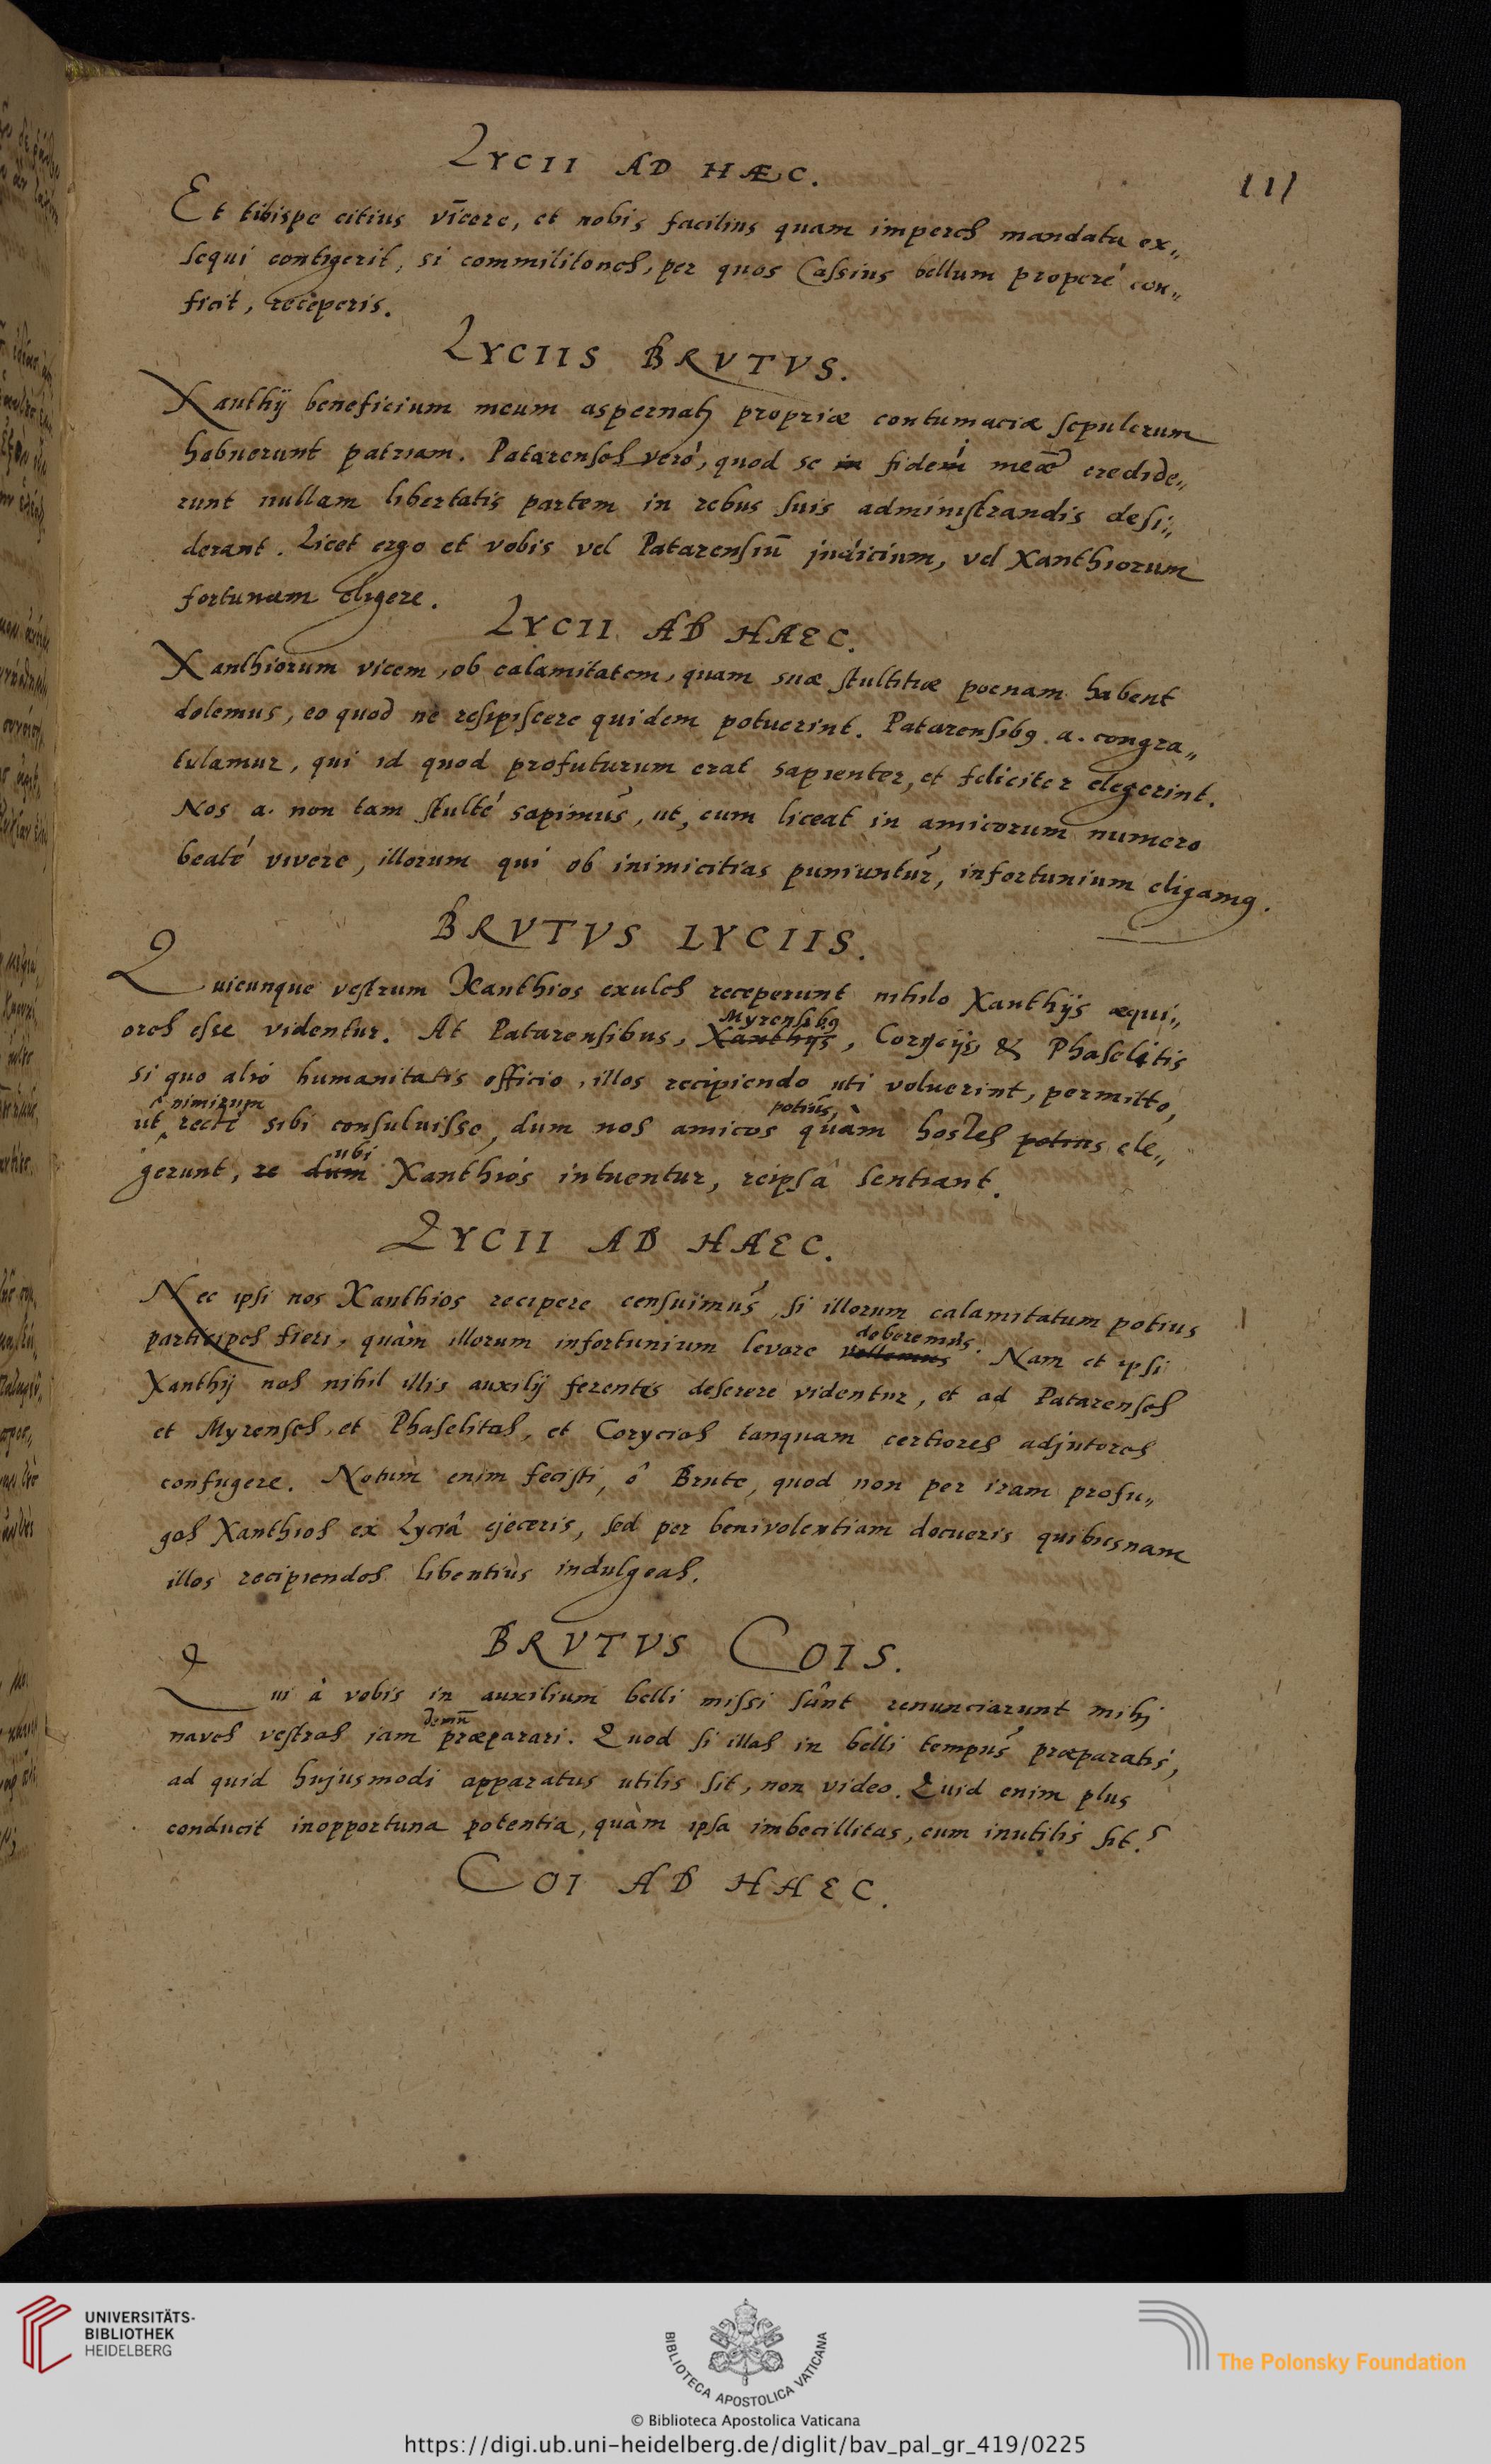 LYCII AD HÆC.
111
Et citius vīcere, et nobis facilius quam imperes mandata ex„
sequi contigerit, si commilitones, per quos Cassius bellum properé con„
ficit, receperis.
LYCIIS BRVTVS.
Xanthij beneficium meum propriæ contumaciæ sepulcrum
habuerunt patriam. Patarenses veró, quod se fidei meæ credide„
runt nullam libertatis partem in rebus suis administrandis desi„
derant. Licet ergo et vobis vel Patarensiū judicium, vel Xanthiorum
fortunam eligere.
LYCII AD HAEC.
Xanthiorum vicem, ob calamitatem, quam suæ stultitiæ poenam habent
dolemus, eo quod ne resipiscere quidem potuerint. Patarensibꝰ. a. congra„
tulamur, qui id quod profuturum erat sapienter, et feliciter elegerint.
Nos a. non tam stulté sapimus, ut, cum liceat in amicorum numero
beaté vivere, illorum qui ob inimicitias puniuntur, infortunium eligamꝰ.
BRVTVS LYCIIS.
Quicunque vestrum Xanthios exules receperunt nihilo Xanthijs æqui„
ores esse videntur. At Patarensibus, Xanthijs Myrensibꝰ, Corycijs & Phaselitis
si quo alio humanitatis officio, illos recipiendo uti voluerint, permitto,
ut nimirum recté sibi consuluisse, dum nos amicos potius, quàm hostes potius ele„
gerunt, re dum ubi Xanthios intuentur, reipsâ sentiant.
LYCII AD HAEC.
Nec ipsi nos Xanthios recipere censuimus, si illorum calamitatum potius
participes fieri, quàm illorum infortunium levare vellemus deberemus. Nam et ipsi
Xanthij nos nihil illis auxilij ferentes deserere videntur, et ad Patarenses
et Myrenses, et Phaselitas, et Corycios tanquam certiores adjutores
confugere. Notum enim fecisti, ô Brute, quod non per iram profu„
gos Xanthios ex Lyciâ ejeceris, sed per benivolentiam docueris quibusnam
illos recipiendos libentiùs indulgeas.
BRVTVS COIS.
Qui à vobis in auxilium belli missi sunt renunciarunt mihj
naves vestras iam demū præparari. Quod si illas in belli tempus præparatis,
ad quid hujusmodi apparatus utilis sit, non video. Quid enim plus
conducit inopportuna potentia, quàm ipsa imbecillitas, cum inutilis sit?
COI AD HAEC.
UNIVERSITÄTS-
BIBLIOTHEK
HEIDELBERG
BIBLIOTECA APOSTOLICA VATICANA
The Polonsky Foundation
© Biblioteca Apostolica Vaticana
https://digi.ub.uni-heidelberg.de/diglit/bav_pal_gr_419/0225